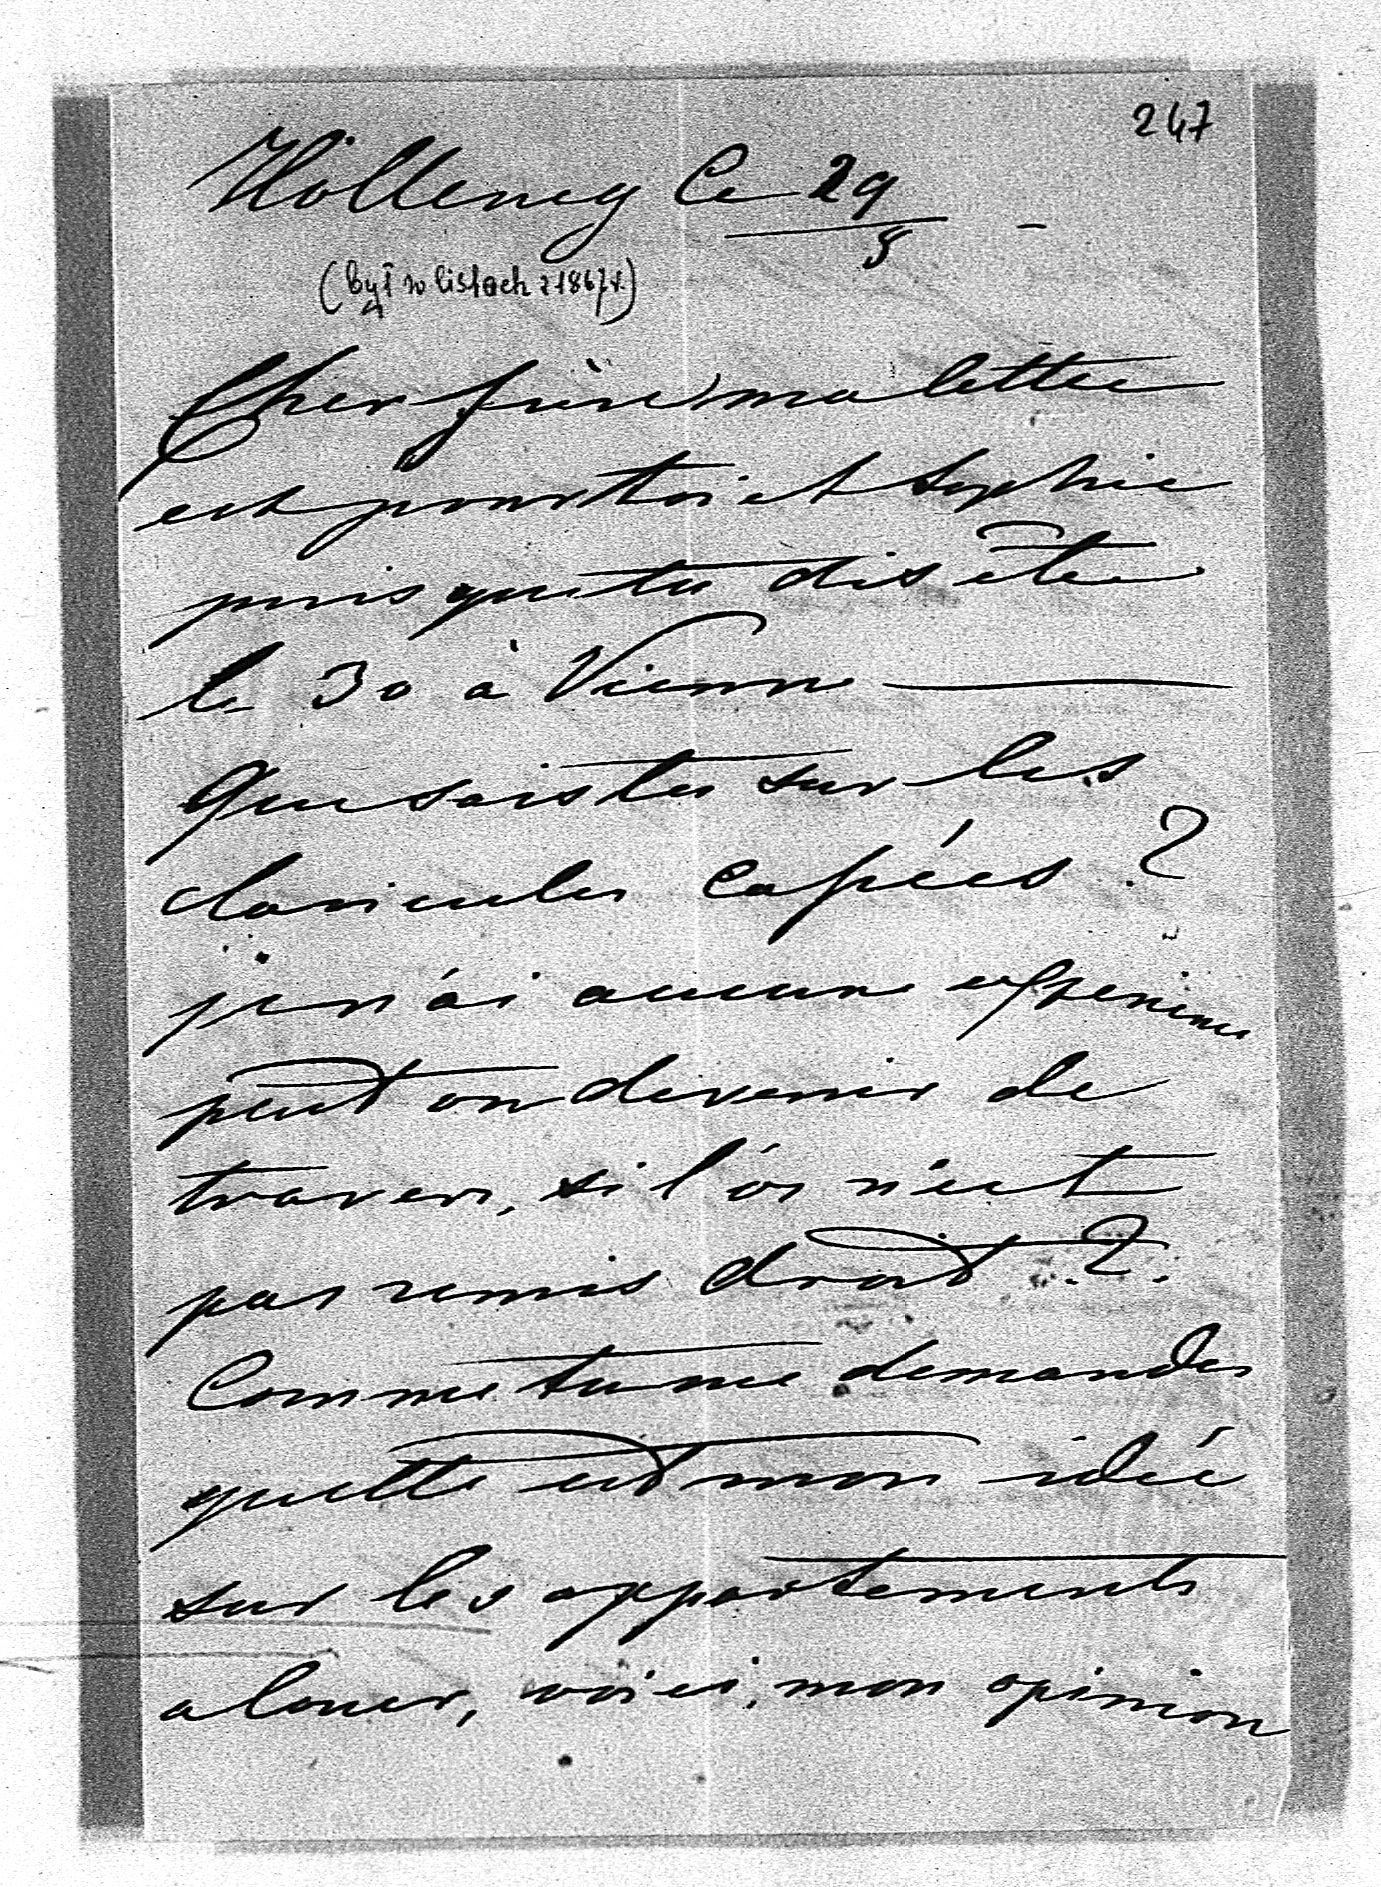 247
Hölleneg Ce 29/5 –
(był w listach z 1867 r.)
Cher frère, ma lettre
est pour toi et Sophie
puisque tu dis être
le 30 à Vienne —
Que sais tu sur les
clavicules capées ?
je n'ai aucune expérience
peut on devenir de
travers, si l'os n'est
pas remis droit ?
Comme tu me demandes
quelle est mon idée
sur les appartements
a louer, voici, mon opinion